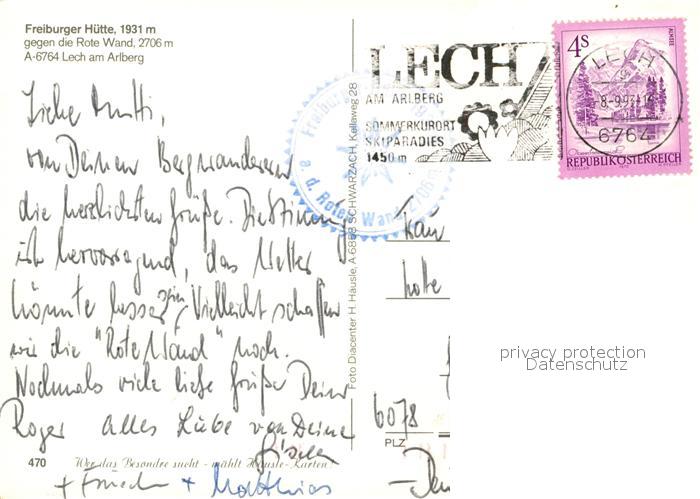 Freiburger Hütte, 1931 m
gegen die Rote Wand, 2706 m
A-6764 Lech am Arlberg
Liebe Mutti,
von Deinen Bergwanderern
die herzlichsten Grüße. Die Stimmung
ist hervorragend, das Wetter
könnte besser sein. Vielleicht schaffen
wir die "Rote Wand" noch.
Nochmals viele liebe Grüße Dein
Roger Alles Liebe von Deine
Gisela
+ + Matthias
470 Wer das Besondre sucht - wählt Häusle-Karten!
Foto Diacenter H. Häusle, A-6858 SCHWARZACH, Kellaweg 28
Freiburg
a. d. Roten Wand 2706 m
LECH
AM ARLBERG
SOMMERKURORT
SKIPARADIES
1450 m
4S
ALMSEE
REPUBLIK ÖSTERREICH
LECH
-8.-9.93
6764
Frau
6078
PLZ
privacy protection
Datenschutz